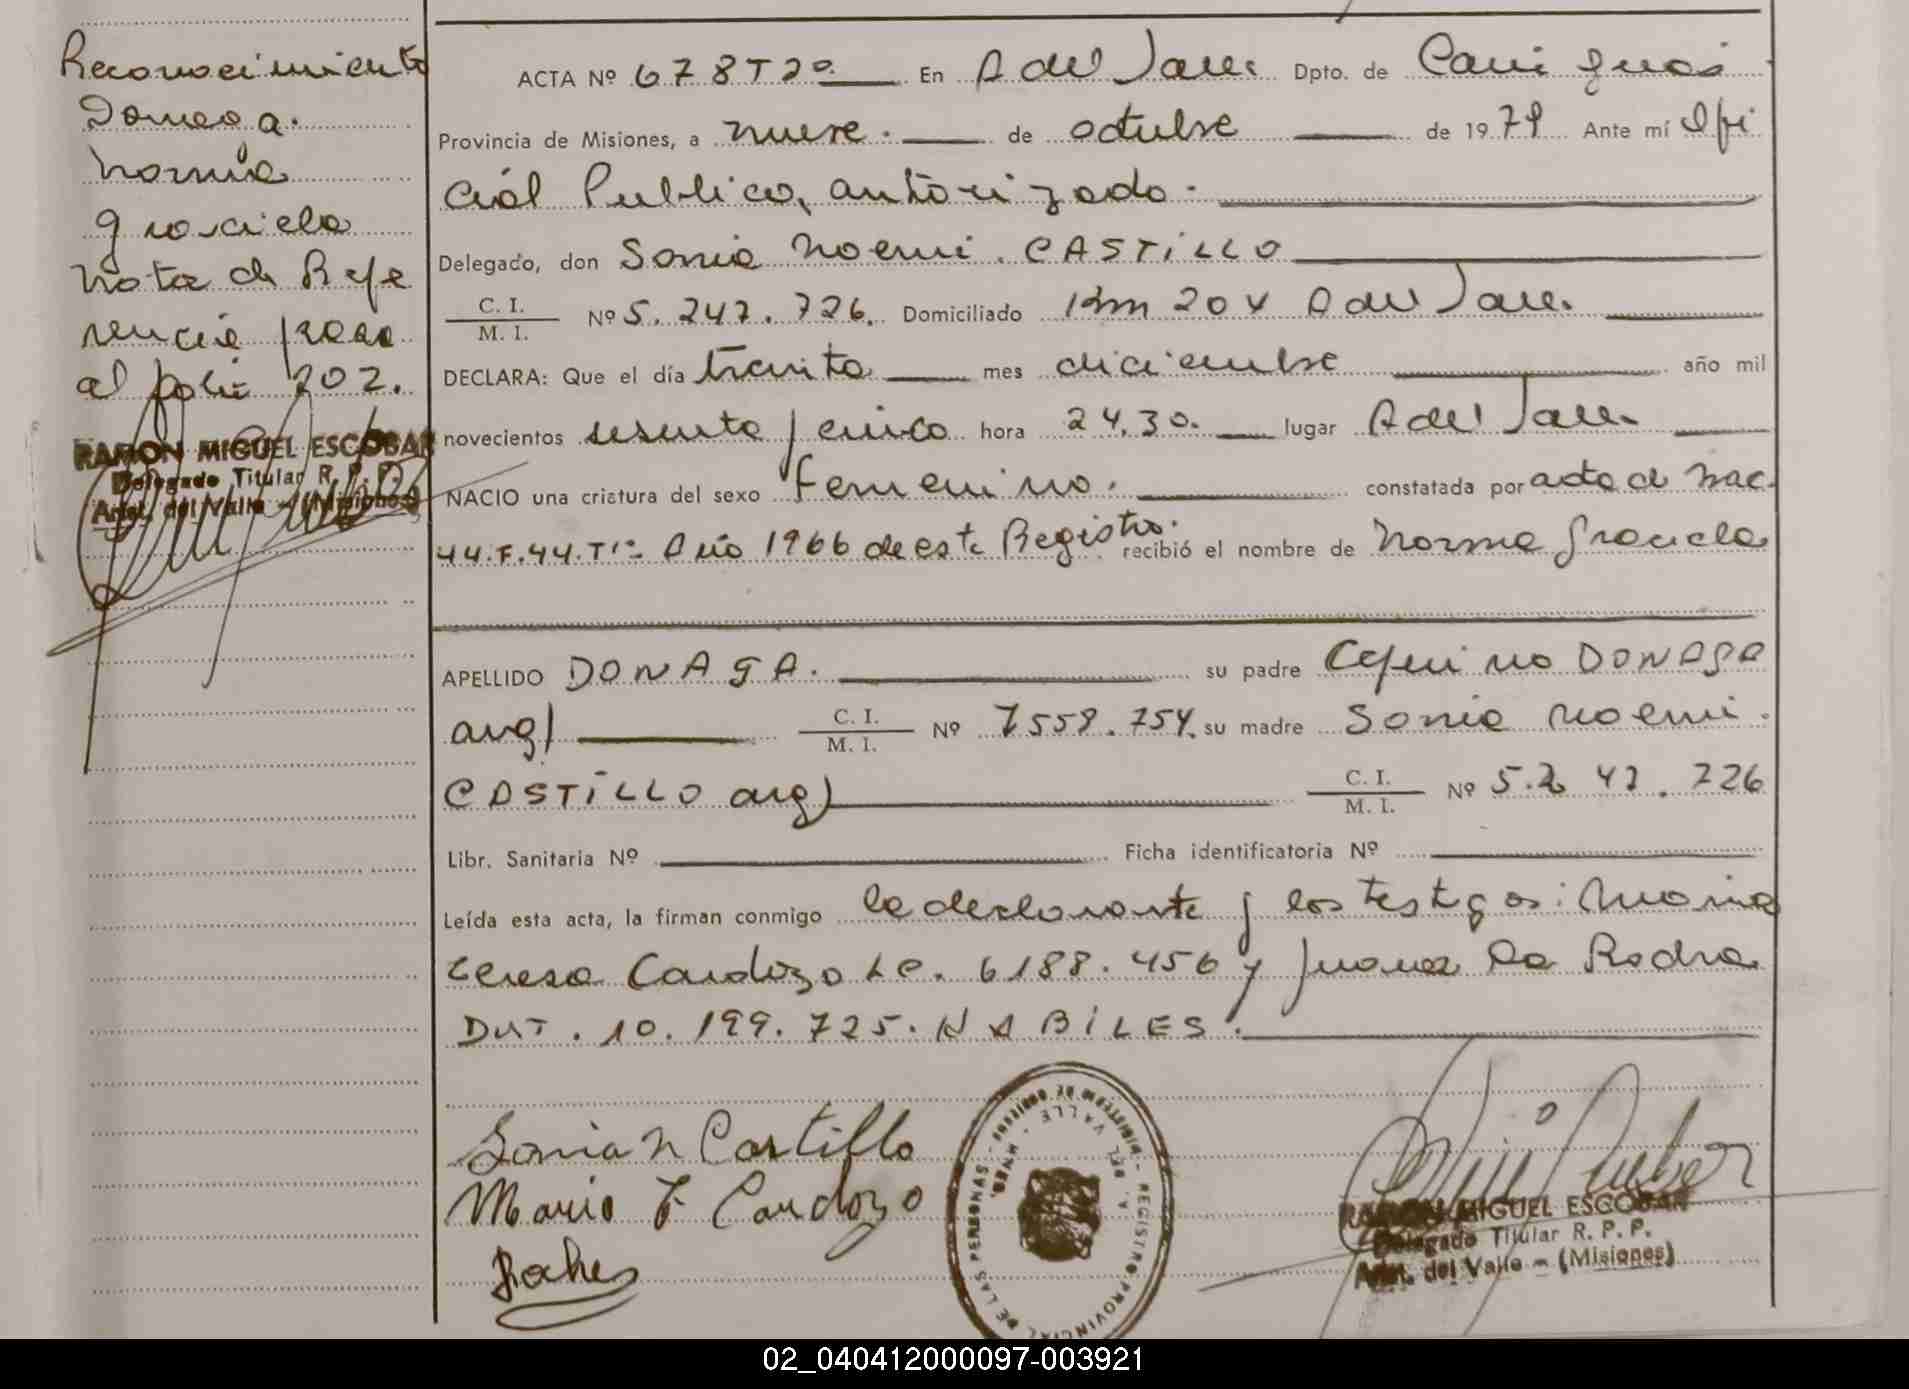 Reconocimiento
Donaga.
Norma
graciela
Nota de Refe
rencia paso
al folio 202.
RAMON MIGUEL ESCOBAR
Delegado Titular R. P. P.
Arist. del Valle - (Misiones)
ACTA Nº 678 T 2º En A del Valle Dpto. de Cainguas
Provincia de Misiones, a nueve. de octubre de 1979 Ante mí Ofi
cial Publico, autorizado.
Delegado, don Sonia Noemi. CASTILLO
C. I. / M. I. Nº 5.247.726. Domiciliado Km 204 A del Valle.
DECLARA: Que el día treinta mes diciembre año mil
novecientos sesenta y cinco hora 24,30. lugar A del Valle
NACIO una criatura del sexo femenino. constatada por acta de Nac.
44.F.44.Tº1 Año 1966 de este Registro. recibió el nombre de Norma Graciela
APELLIDO DONAGA. su padre Ceferino DONAGA
arg) C. I. / M. I. Nº 7558.754. su madre Sonia Noemi.
CASTILLO arg) C. I. / M. I. Nº 5.247.726
Libr. Sanitaria Nº Ficha identificatoria Nº
Leída esta acta, la firman conmigo la declarante y los testigos: Maria
teresa Cardozo Lc. 6188.456 y Juana la Rodra
DNI. 10.199.725. HABILES.
Sonia N Castillo
Maria T. Cardozo
REGISTRO PROVINCIAL DE LAS PERSONAS - MINISTERIO DE GOBIERNO
A. DEL VALLE - MNES.
RAMON MIGUEL ESCOBAR
Delegado Titular R. P. P.
Arist. del Valle - (Misiones)
02_040412000097-003921